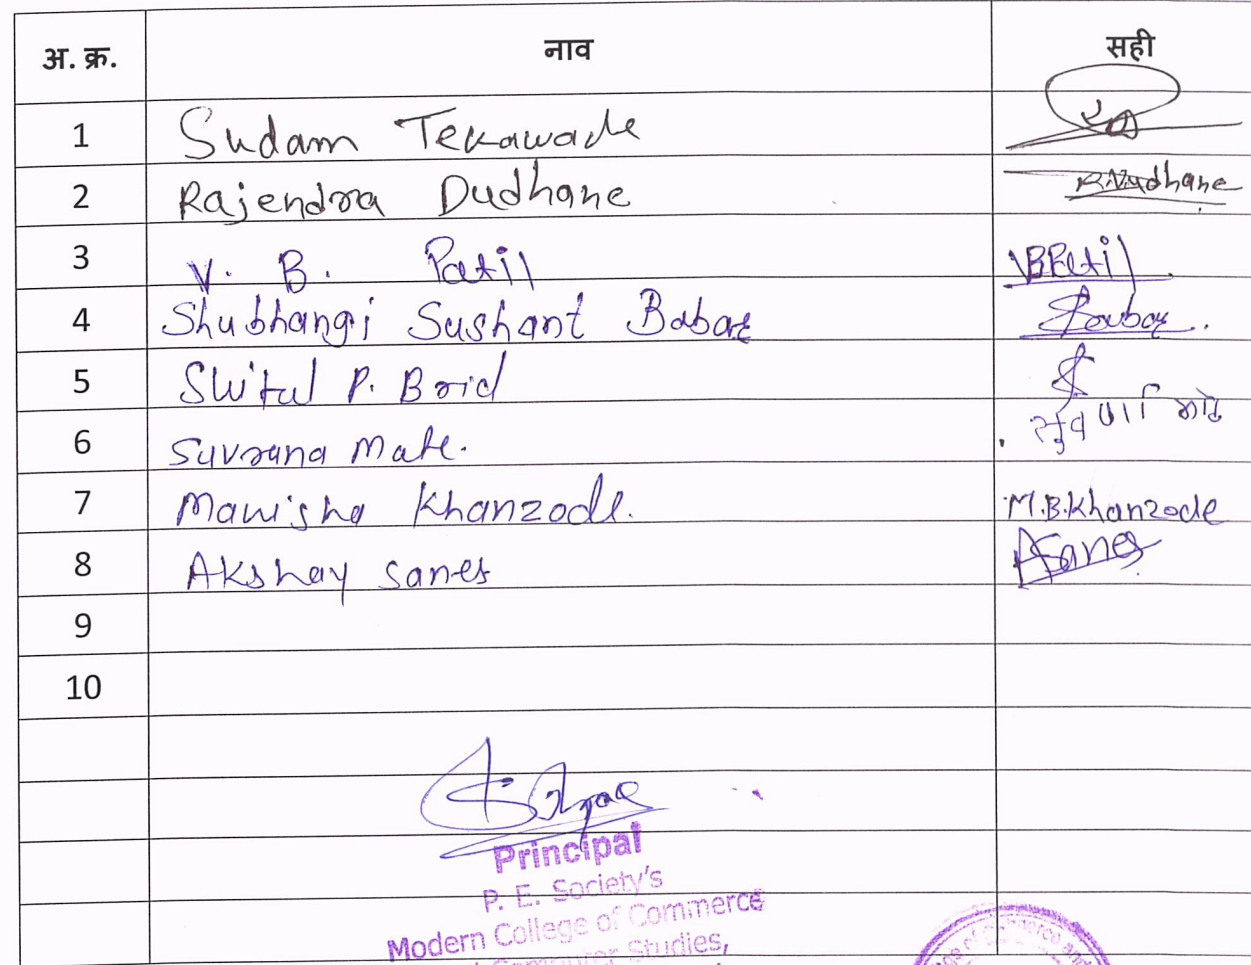 अ. क्र. नाव सही
1 Sudam Tekawade
2 Rajendra Dudhane R.Dudhane
3 V. B. Patil VBPatil
4 Shubhangi Sushant Babar
5 P. Brid
6 Suvrana Mate. सुवर्णा माटे
7 Manisha Khanzode. M.B.Khanzode
8 Akshay Sanes
9
10
Principal
P. E. Society's
Modern College of Commerce
Computer Studies,